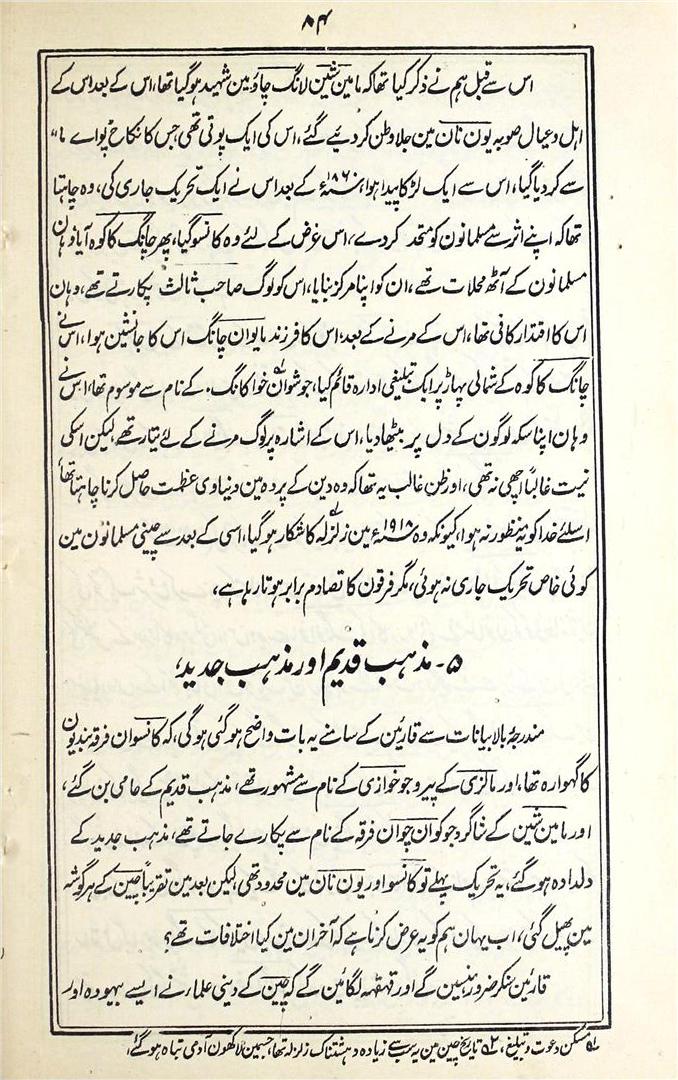 ۸۴
اس سے قبل ہم نے ذکر کیا تھا کہ مامین شین لانگ چاؤ مین شہید ہو گیا تھا، اس کے بعد اس کے
اہل و عیال صوبہ یون نان مین جلا وطن کر دیئے گئے، اس کی ایک پوتی تھی جس کا نکاح پوائے ما"
سے کر دیا گیا، اس سے ایک لڑکا پیدا ہوا، ۱۸۶۰ء کے بعد اس نے ایک تحریک جاری کی، وہ چاہتا
تھا کہ اپنے اثر سے مسلمانون کو متحد کر دے، اس غرض کے لئے وہ کانسو گیا، پھر جانگ کاکوہ آیا وہان
مسلمانون کے آٹھ محلات تھے، ان کو اپنا مرکز بنایا، اس کو لوگ صاحب ثالث پکارتے تھے، وہان
اس کا اقتدار کافی تھا، اس کے مرنے کے بعد، اس کا فرزند مایوان چانگ اس کا جانشین ہوا، اس نے
جانگ کاکوہ کے شمالی پہاڑ پر ایک تبلیغی ادارہ قائم کیا، جو شوان خواکانگ۔ کے نام سے موسوم تھا، اس نے
وہان اپنا سکہ لوگون کے دل پر بیٹھا دیا، اس کے اشارہ پر لوگ مرنے کے لئے تیار تھے، لیکن اسکی
نیت غالباً اچھی نہ تھی، اور ظن غالب یہ تھا کہ وہ دین کے پردہ مین دنیاوی عظمت حاصل کرنا چاہتا تھا،
اسلئے خدا کو یہ منظور نہ ہوا، کیونکہ وہ ۱۹۱۸ء مین زلزلہ کا شکار ہو گیا، اسی کے بعد سے چینی مسلمانون مین
کوئی خاص تحریک جاری نہ ہوئی، مگر فرقون کا تصادم برابر ہوتا رہا ہے،
۵۔ مذہب قدیم اور مذہب جدید،
مندرجۂ بالا بیانات سے قارئین کے سامنے یہ بات واضح ہو گئی ہو گی، کہ کانسو ان فرقہ بندیون
کا گہوارہ تھا، اور مالزی کے پیرو جو خوازی کے نام سے مشہور تھے، مذہب قدیم کے حامی بن گئے،
اور مامین شین کے شاگرد جو کوان چوان فرقہ کے نام سے پکارے جاتے تھے، مذہب جدید کے
دلدادہ ہو گئے، یہ تحریک پہلے تو کانسو اور یون نان مین محدود تھی، لیکن بعد مین تقریباً چین کے ہر گوشہ
مین پھیل گئی، اب یہان ہم کو یہ عرض کرنا ہے کہ آخر ان مین کیا اختلافات تھے؟
قارئین سنکر ضرور ہنسین گے اور قہقہہ لگائین گے کہ چین کے دینی علماء نے ایسے بیہودہ اور
۱؎ مسکن دعوت و تبلیغ، ۲؎ تاریخ چین مین یہ سب سے زیادہ دہشتناک زلزلہ تھا، جسمین لاکھون آدمی تباہ ہو گئے،